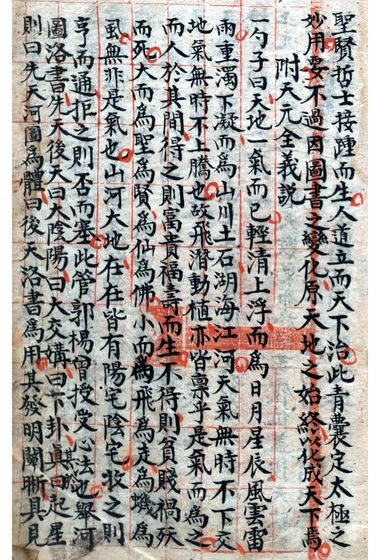 聖賢哲士接踵而生人道立而天下治此青囊定太極之
妙用要不過因圖書之變化原天地之始終以化成天下焉
附天元全義說
一勺子曰天地一氣而已輕清上浮而為日月星辰風雲雷
雨重濁下凝而為山川土石湖海江河天氣無時不下交
地氣無時不上騰也故飛潛動植亦皆禀乎是氣而為之
而人於其間得之則富貴福壽而生不得則貧賤禍殀
而死大而為聖為賢為仙為佛小而為飛為走為蠛為
風無非是氣也山河大地在在皆有陽宅陰宅收之則
亨而通拒之則否而塞此管郭楊曾授受心法也舉河
圖洛書先天後天曰大陰陽曰大交媾曰下卦其曰起星
則曰先天河圖為體曰後天洛書為用其發明闡晰具見